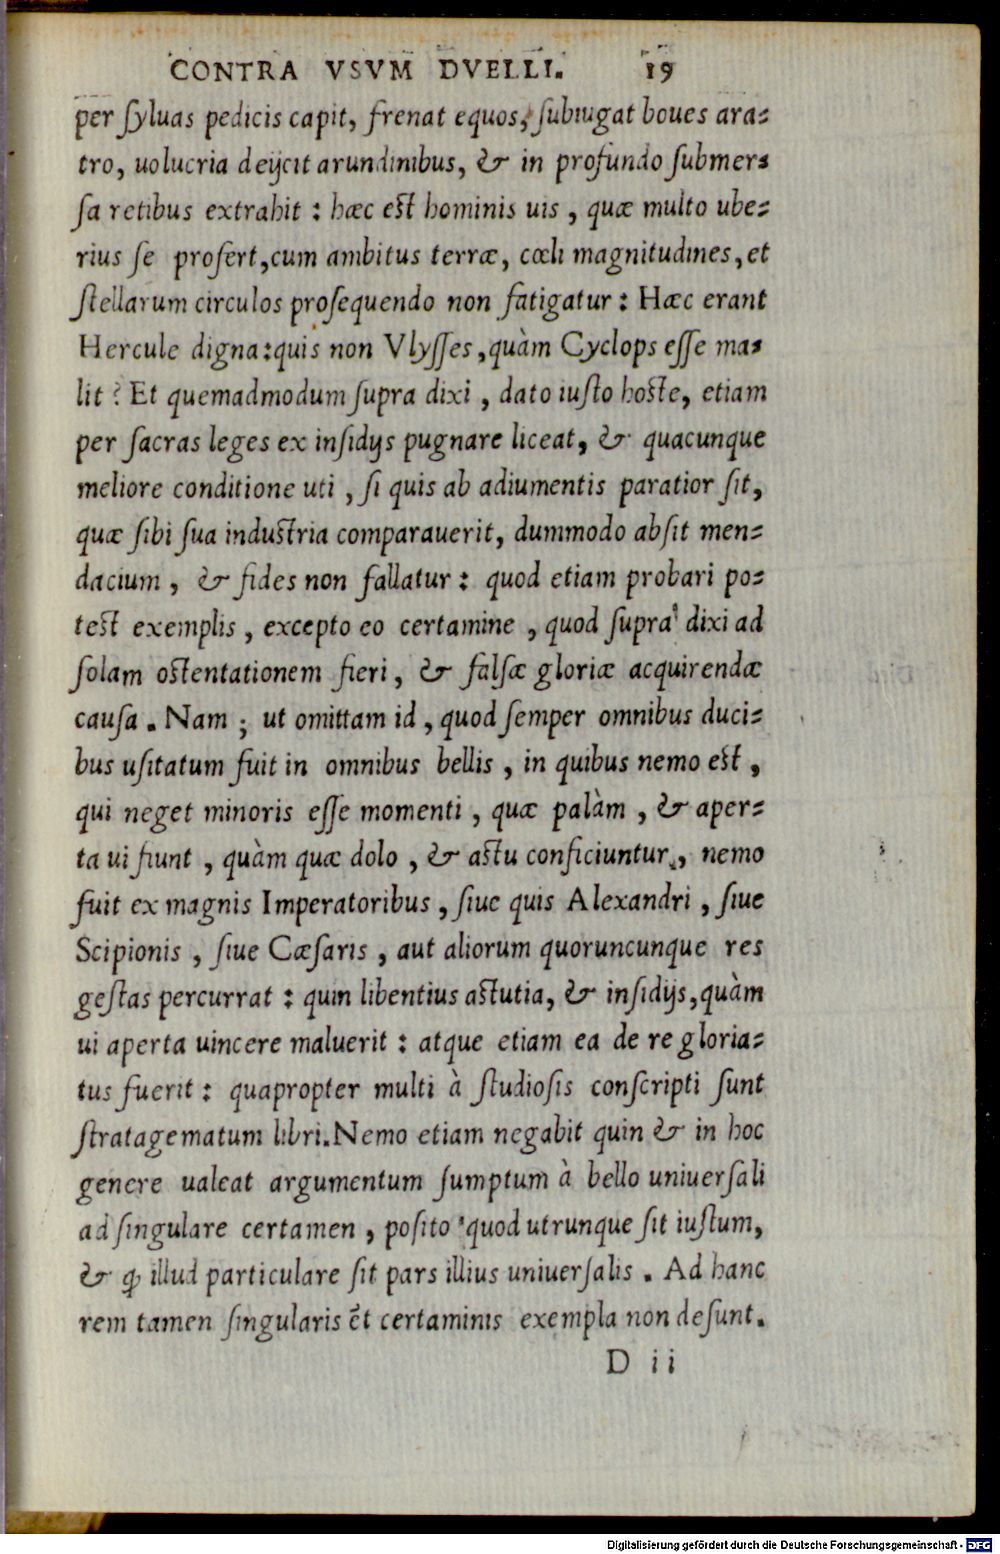 CONTRA VSVM DVELLI. 19
per ſyluas pedicis capit, frenat equos, ſubiugat boues ara-
tro, uolucria deijcit arundinibus, & in profundo ſubmer-
ſa retibus extrahit : hæc eſt hominis uis , quæ multo ube-
rius ſe profert, cum ambitus terræ, cœli magnitudines, et
ſtellarum circulos proſequendo non fatigatur : Hæc erant
Hercule digna: quis non Vlyſſes, quàm Cyclops eſſe ma-
lit ? Et quemadmodum ſupra dixi , dato iuſto hoſte, etiam
per ſacras leges ex inſidijs pugnare liceat, & quacunque
meliore conditione uti , ſi quis ab adiumentis paratior ſit,
quæ ſibi ſua induſtria comparauerit, dummodo abſit men-
dacium , & fides non fallatur : quod etiam probari po-
teſt exemplis , excepto eo certamine , quod ſupra dixi ad
ſolam oſtentationem fieri , & falſæ gloriæ acquirendæ
cauſa . Nam ; ut omittam id , quod ſemper omnibus duci-
bus uſitatum fuit in omnibus bellis , in quibus nemo eſt ,
qui neget minoris eſſe momenti , quæ palàm , & aper-
ta ui fiunt , quàm quæ dolo , & aſtu conficiuntur , nemo
fuit ex magnis Imperatoribus , ſiue quis Alexandri , ſiue
Scipionis , ſiue Cæſaris , aut aliorum quoruncunque res
geſtas percurrat : quin libentius aſtutia, & inſidijs, quàm
ui aperta uincere maluerit : atque etiam ea de re gloria-
tus fuerit : quapropter multi à ſtudioſis conſcripti ſunt
ſtratagematum libri. Nemo etiam negabit quin & in hoc
genere ualeat argumentum ſumptum à bello uniuerſali
ad ſingulare certamen , poſito quod utrunque ſit iuſtum,
& ꝙ illud particulare ſit pars illius uniuerſalis . Ad hanc
rem tamen ſingularis ẽt certaminis exempla non deſunt.
D ii
Digitalisierung gefördert durch die Deutsche Forschungsgemeinschaft - DFG